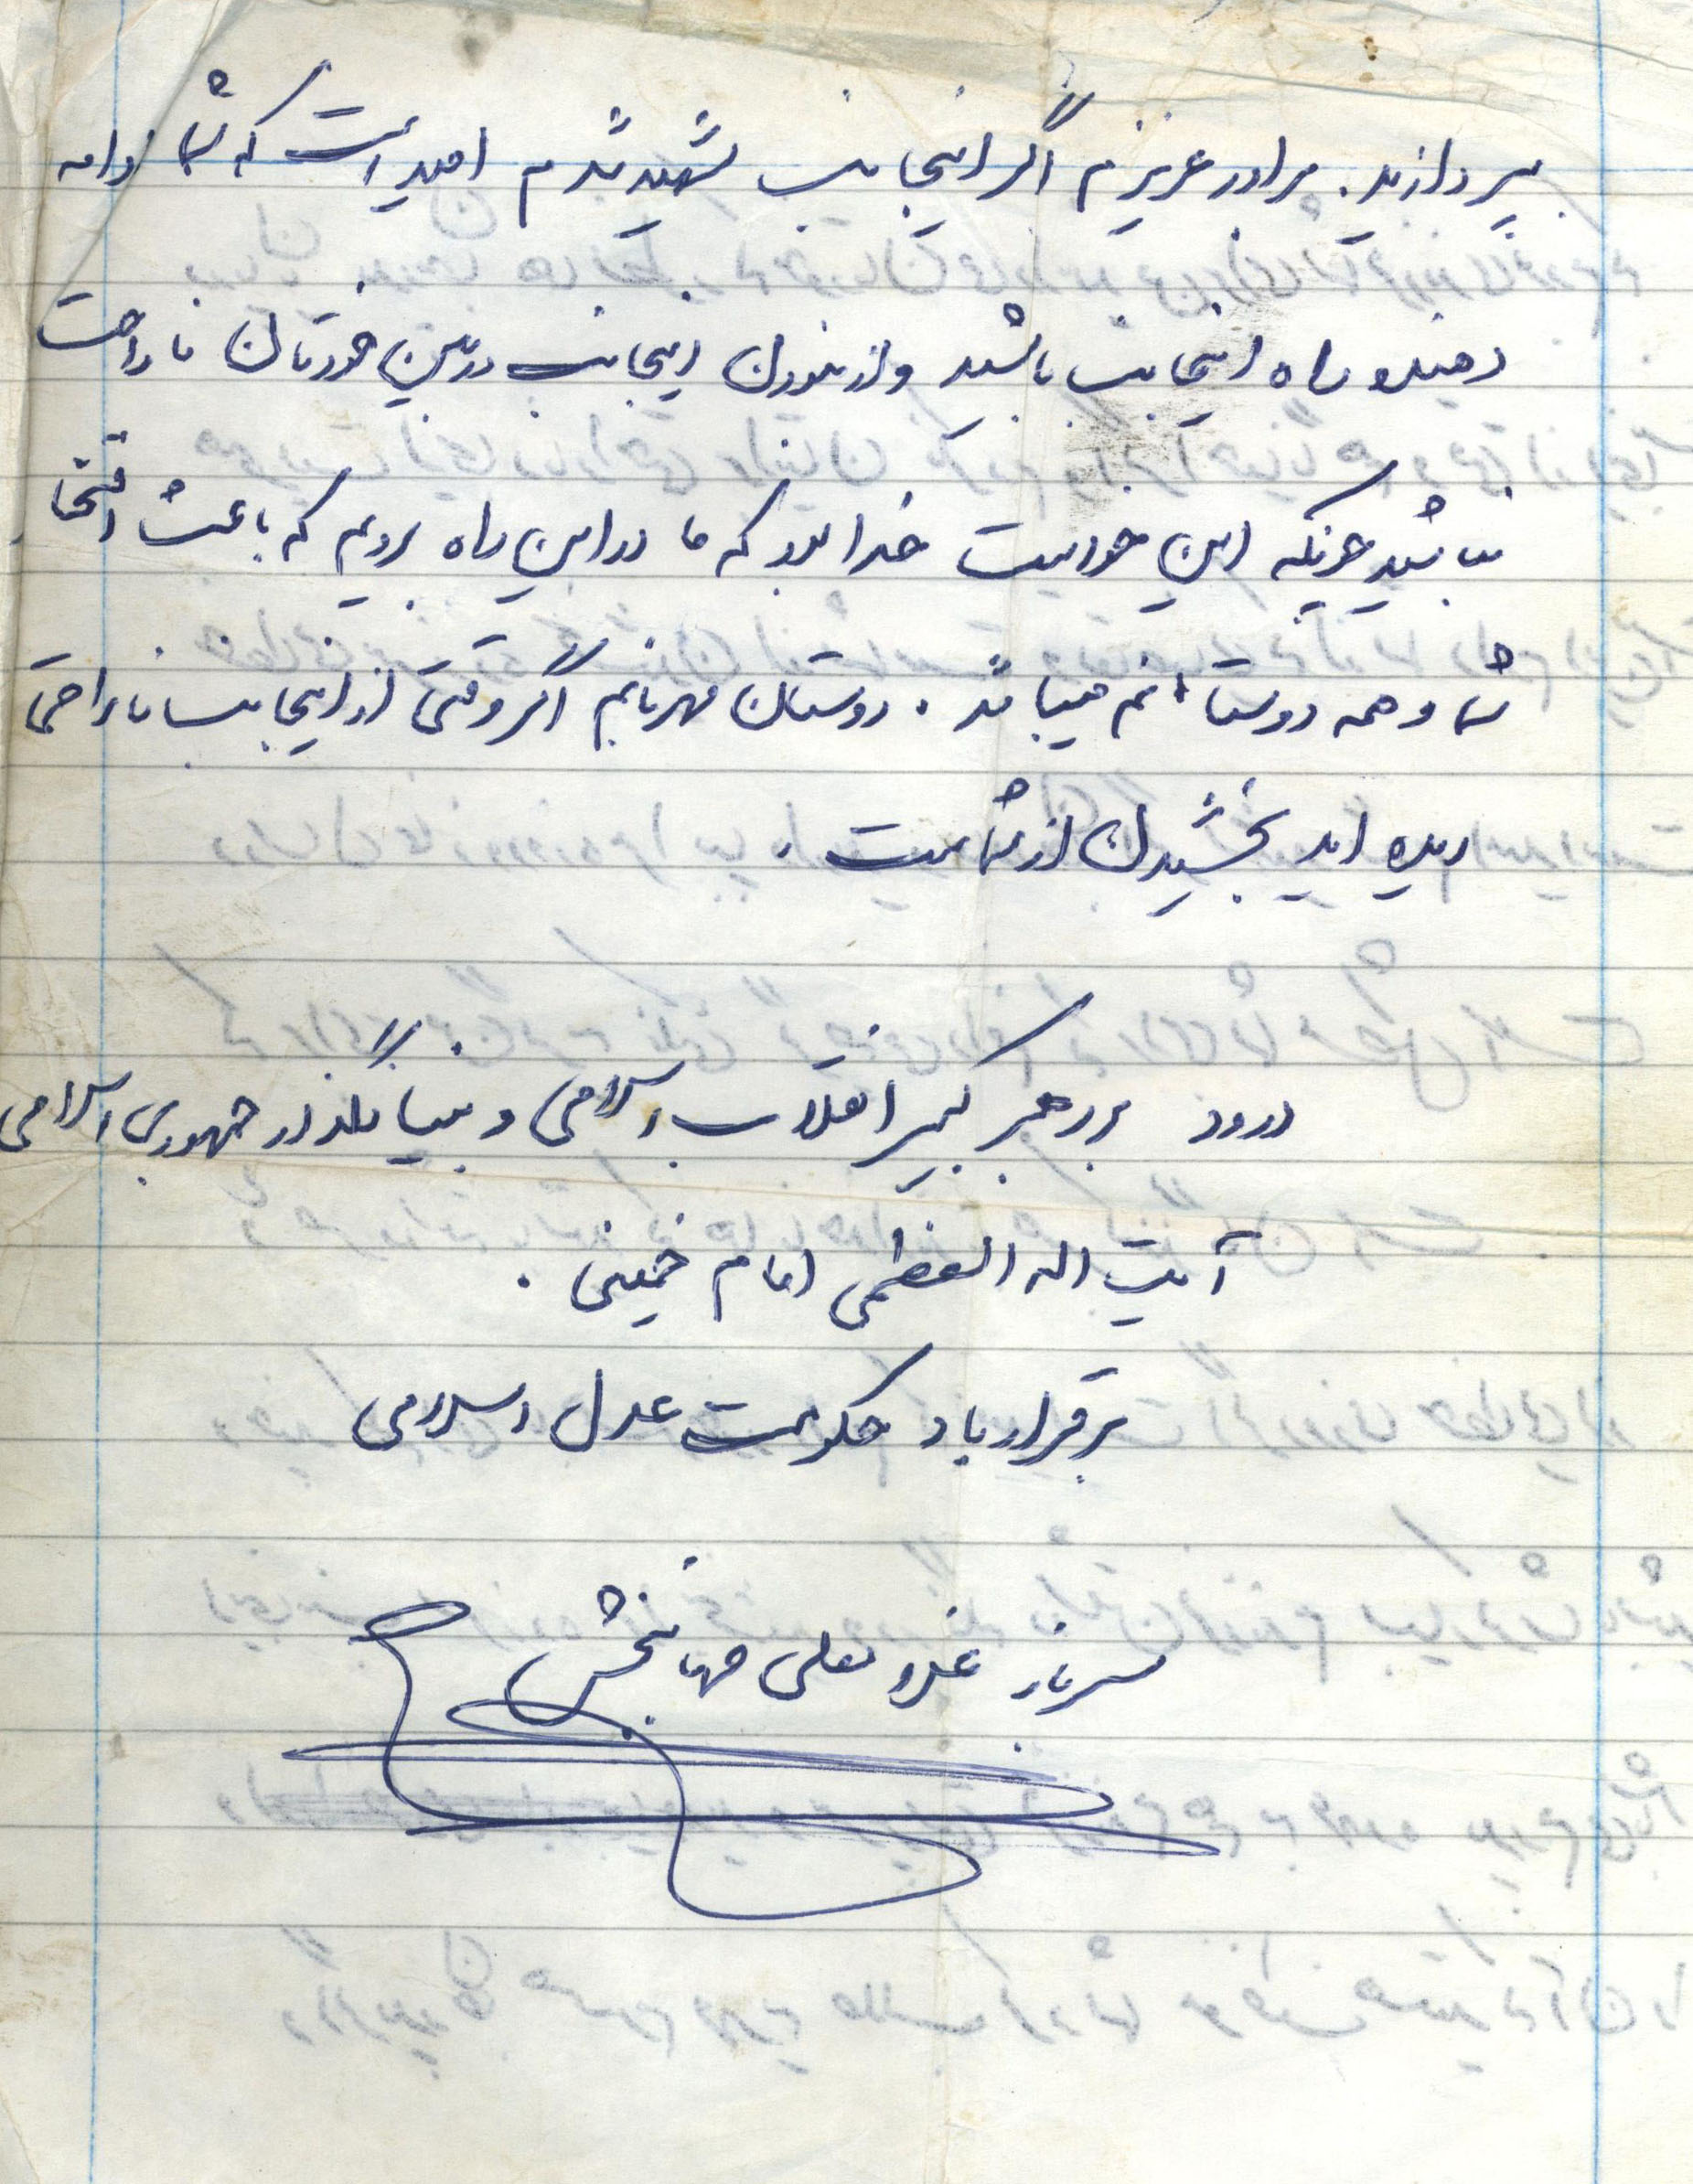 بپردازید. برادر عزیزم اگر اینجانب شهید شدم امید است که شما ادامه
دهنده راه اینجانب باشید و از نبودن اینجانب در بین خودتان ناراحت
نباشید چونکه این خواست خدا بود که ما در این راه برویم که باعث افتخار
شما و همه دوستانم میباشد. دوستان مهربانم اگر وقتی از اینجانب ناراحتی
دیده اید بخشیدن از شماست.
درود بر رهبر کبیر انقلاب اسلامی و بنیانگذار جمهوری اسلامی
آیت اله العظمی امام خمینی.
برقرار باد حکومت عدل اسلامی
سرباز غلامعلی جهانبخش